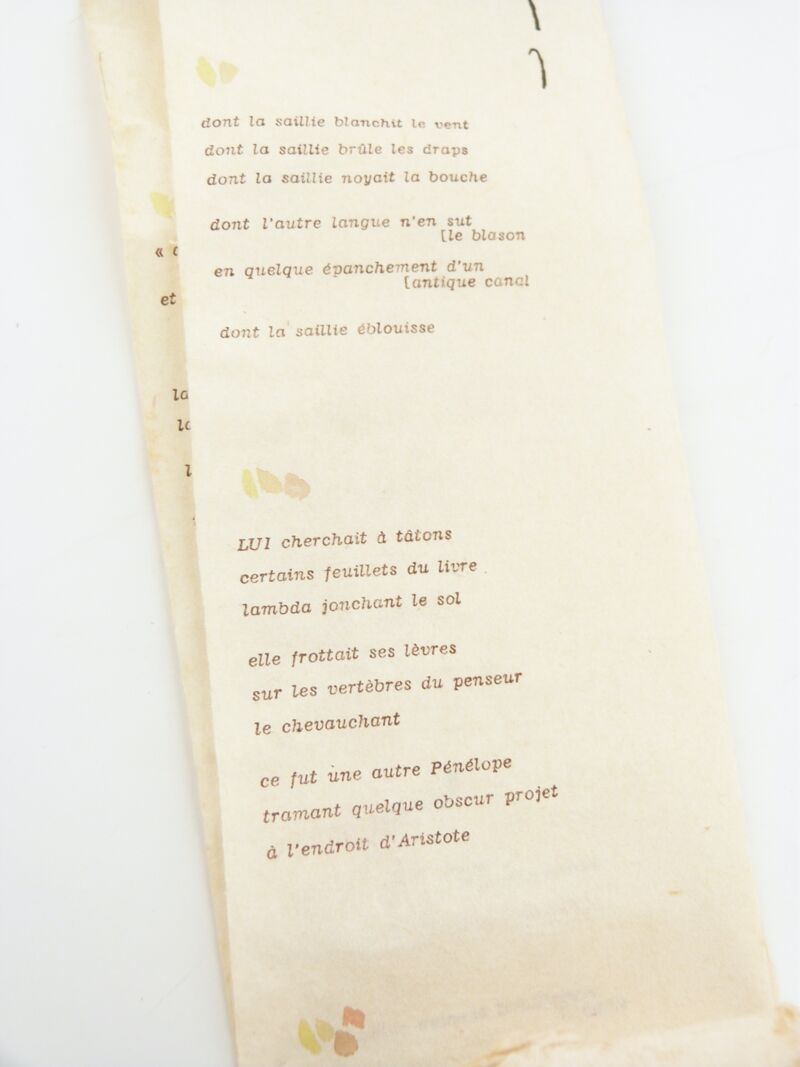 dont la saillie blanchit le vent
dont la saillie brûle les draps
dont la saillie noyait la bouche
dont l'autre langue n'en sut
[le blason
en quelque épanchement d'un
[antique canal
dont la saillie éblouisse
LUI cherchait à tâtons
certains feuillets du livre
lambda jonchant le sol
elle frottait ses lèvres
sur les vertèbres du penseur
le chevauchant
ce fut une autre Pénélope
tramant quelque obscur projet
à l'endroit d'Aristote
«
et
la